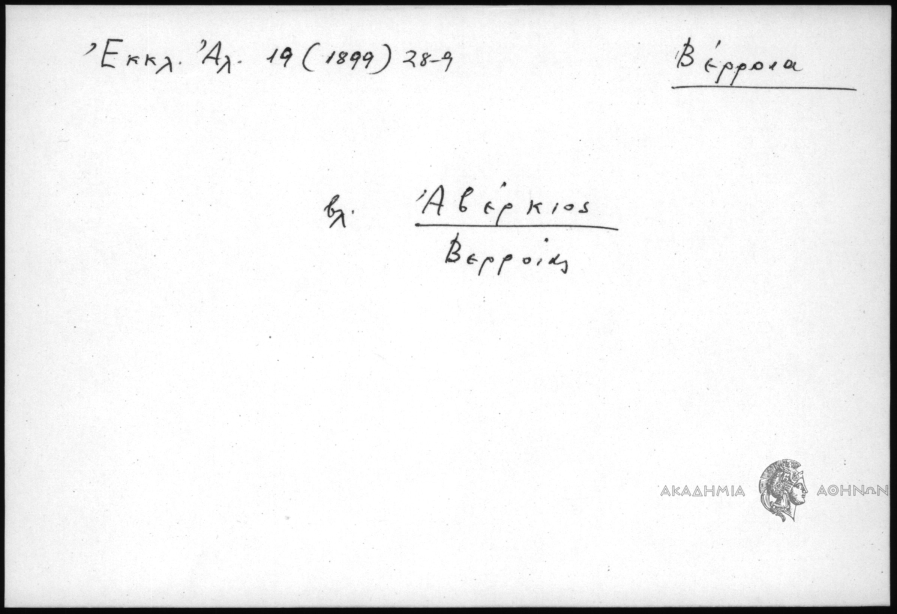 Ἐκκλ. Ἀλ. 19 (1899) 28-9
Βέρροια
βλ. Ἀβέρκιος
Βερροίας
ΑΚΑΔΗΜΙΑ ΑΘΗΝΩΝ